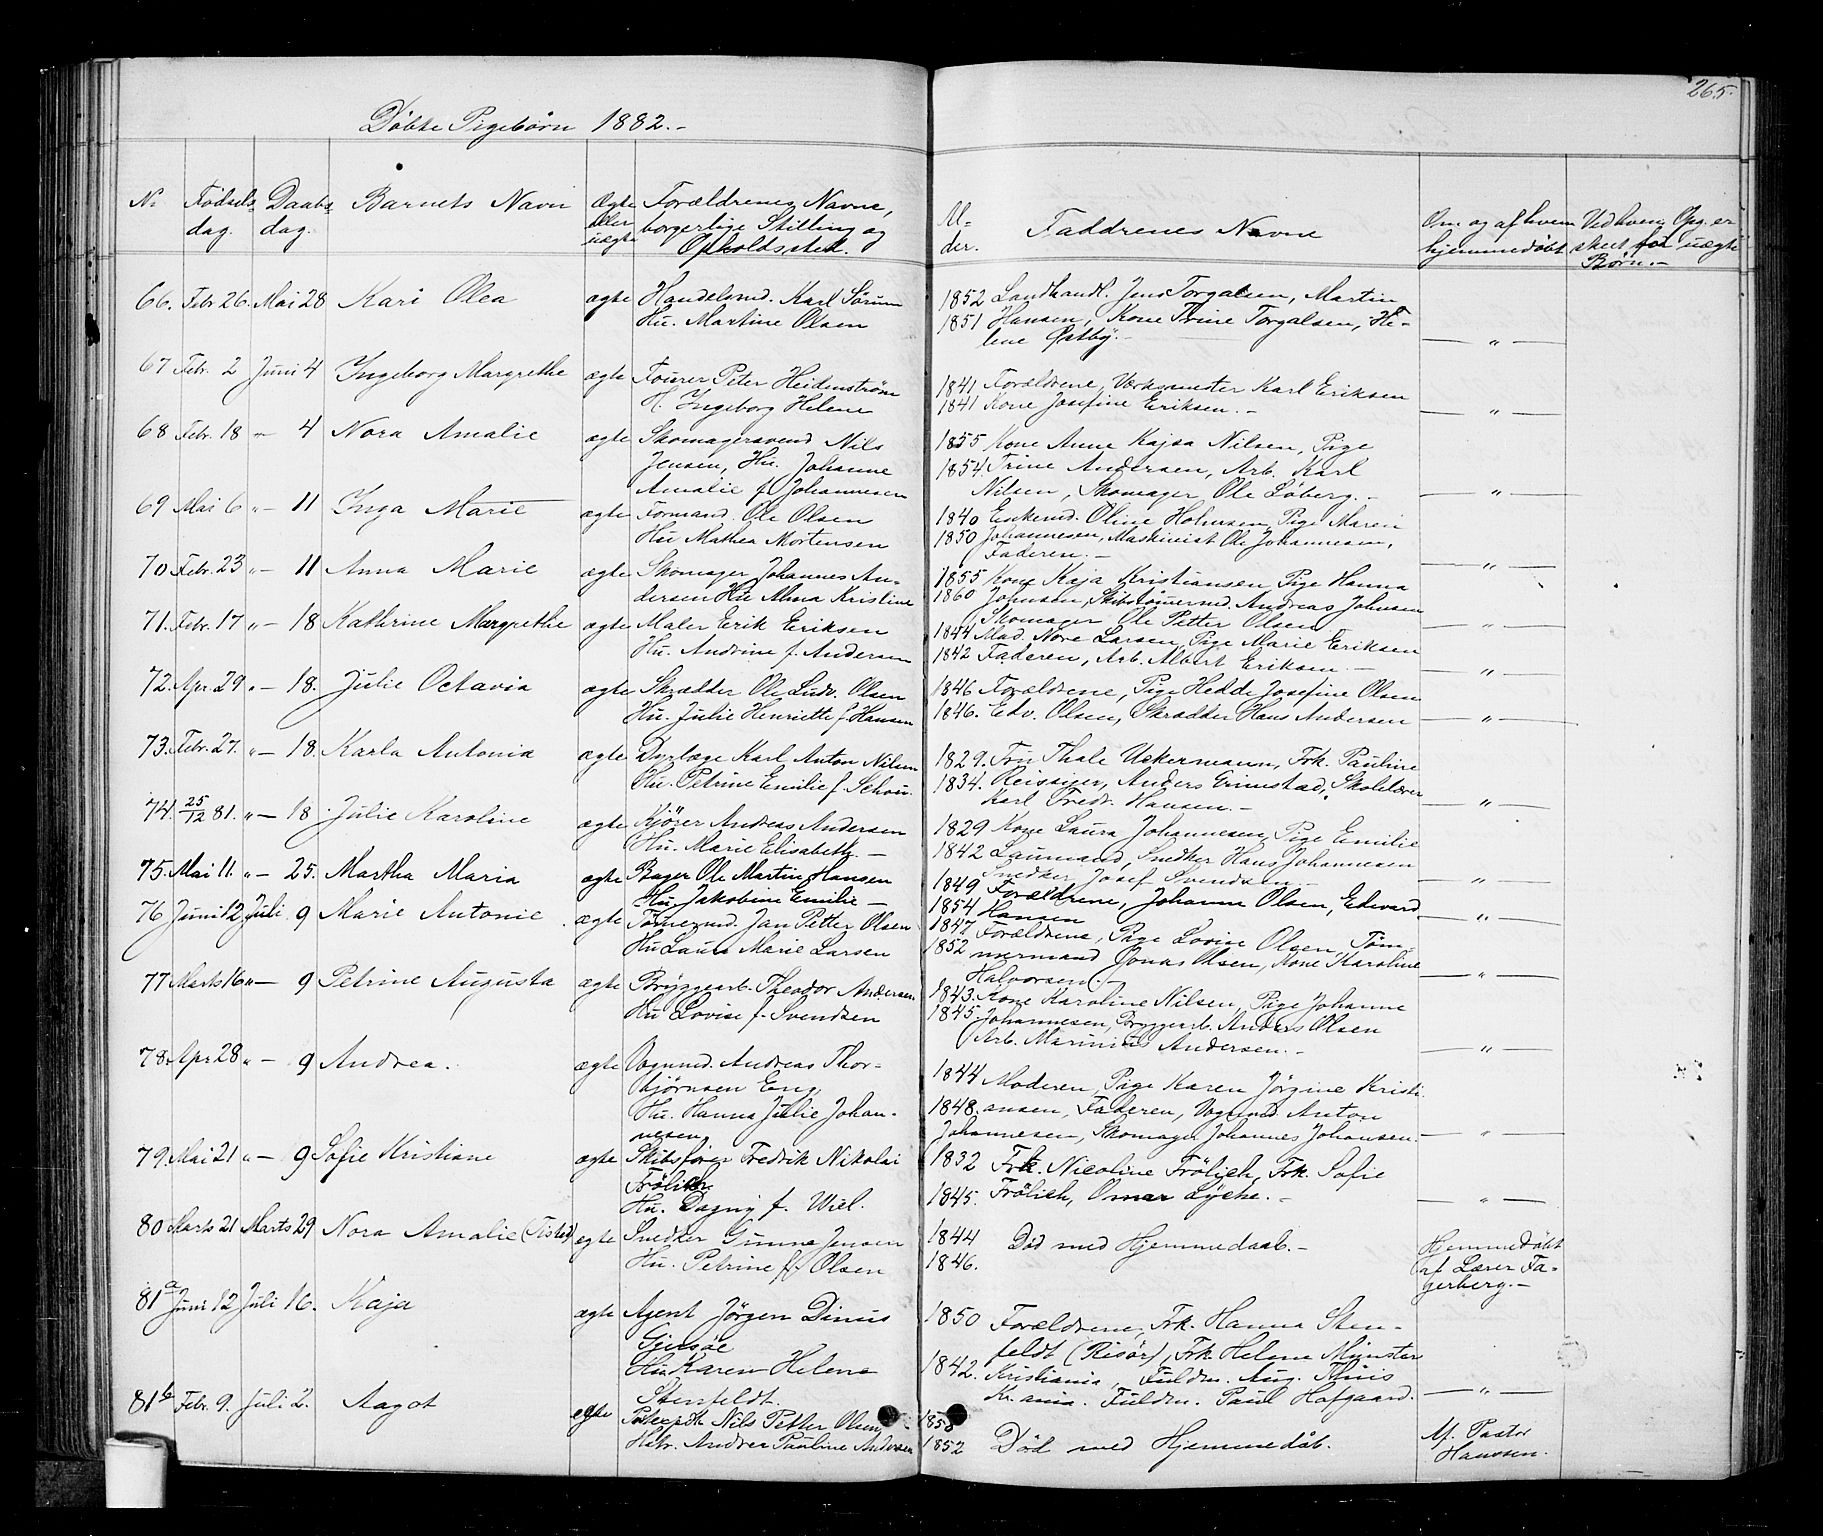 265.
Døbte Pigebørn 1882.-
No Fødsels- Daabs- Barnets Navn Ægte Forældrenes Navne, Al- Faddrenes Navne Om og af hvem Ved hvem Opg. er
dag. dag. eller borgerlige Stilling og der. hjemmedøbt skeet for uægte
uægte Opholdssted. Børn.-
66. Febr 26. Mai 28 Kari Olea ægte Handelsmd. Karl Sörum 1852 Landhandl. Jens Torgalsen, Martin
Hu. Martine Olsen 1851 Hansen, Kone Trine Torgalsen, He-
lene Østby.- — " —
67 Febr. 2 Juni 4 Ingeborg Margrethe ægte Fourer Peter Heidenstrøm 1841 Forældrene, Værksmester Karl Eriksen
H. Ingeborg Helene 1841 Kone Josefine Eriksen.- — " —
68 Febr. 18 " 4 Nora Amalie ægte Skomagersvend Nils 1855 Kone Anne Kajsa Nilsen, Pige
Jensen, Hu. Johanne 1854 Trine Andersen, Arb. Karl
Amalie f. Johannesen Nilsen, Skomager Ole Löberg.- — " —
69 Mai 6 " — 11 Inga Marie ægte Formand. Ole Olsen 1840 Enkemd. Oline Holmsen, Pige Maren
Hu Mathea Mortensen 1850 Johannesen, Maskinist Ole Johannesen,
Faderen.- — " —
70 Febr. 23 " — 11 Anna Marie ægte Skomager Johannes An- 1855 Kone Kaja Kristiansen, Pige Hanna
dersen Hu Alma Kristine 1860 Johnsen, Skibstömermd. Andreas Johnsen
Skomager Ole Petter Olsen — " —
71. Febr. 17 " — 18 Kathrine Margrethe ægte Maler Erik Eriksen 1844 Mad. Nore Larsen, Pige Marie Eriksen
Hu. Andrine f. Andersen 1842 Faderen, Arb. Albert Eriksen.- — " —
72. Apr. 29 " — 18. Julie Octavia ægte Skrædder Ole Ludv. Olsen 1846 Forældrene, Pige Hedde Josefine Olsen
Hu. Julie Henriette f. Hansen 1846. Edv. Olsen, Skrædder Hans Andersen — " —
73. Febr. 27. " — 18. Karla Antonia ægte Dyrlæge Karl Anton Nilsen 1829. Fru Thale Uckermann, Frk. Pauline
Hu. Petrine Emilie f. Schou. 1834. Reissiger, Anders Grimstad, Skolelærer
Karl Fredr. Hansen.- — " —
74. 25/12 81. " — 18 Julie Karoline ægte Kjører Andreas Andersen 1829 Kone Laura Johannesen, Pige Emilie
Hu. Marie Elisabeth.- 1842 Laumand, Snedker Hans Johannesen
Snedker Josef Svendsen.- — " —
75. Mai 11. " — 25. Martha Maria ægte Bager Ole Martin Hansen 1849 Forældrene, Johanne Olsen, Edevard
Hu. Jakobine Emilie.- 1854 Hansen — " —
76 Juni 12 Juli 9 Marie Antonie ægte Tømmermd. Jan Petter Olsen 1847 Forældrene, Pige Lovise Olsen, Töm-
Hu Laura Marie Larsen 1852 mermand Jonas Olsen, Kone Karoline
Halvorsen.- — " —
77 Marts 16 " — 9 Petrine Augusta ægte Bryggearb. Theodor Andersen 1843. Kone Karoline Nilsen, Pige Johanne
Hu Lovise f. Svendsen 1845. Johannesen, Bryggearb. Anders Olsen
Arb. Marinius Andersen.- — " —
78. Apr 28 " — 9 Andrea. ægte Vognmd. Andreas Thor- 1844 Moderen, Pige Karen Jörgine Kristi
bjørnsen Eng, 1848. ansen, Faderen, Vognmd Anton
Hu. Hanna Julie Johan- Johannesen, Skomager Johannes Johansen. — " —
nesen
79. Mai 21 " — 9 Sofie Kristiane ægte Skibsfører Fredrik Nikolai 1832 Frk. Nicoline Frölich, Frk. Sofie
Frölich 1845. Frölich, Omar Lyche.- — " —
Hu. Dagny f. Wiel.
80 Marts 21 Marts 29 Nora Amalie (Tisted) ægte Snedker Gunne Jensen 1844 Död med Hjemmedaab.- Hjemmedöbt
Hu. Petrine f. Olsen 1846. af Lærer Fa-
gerberg.-
81 a Juni 12 Juli 16. Kaja ægte Agent Jörgen Dinus 1850 Forældrene, Frk. Hanna Sten-
Gjersøe feldt (Risör), Frk. Helene Münster
Hu. Karen Helene 1842. Kristiania, Fuldm. Aug. Thiis
Stenfeldt. Kr.ania. Fuldm. Paul Hofgaard. — " —
81 b Febr. 9. Juli 2. Aagot ægte Nils Petter Olsen 1858
Hu. Andrea Pauline Andersen 1852 Död med Hjemmedåb. Af. Pastor
Hanssen.